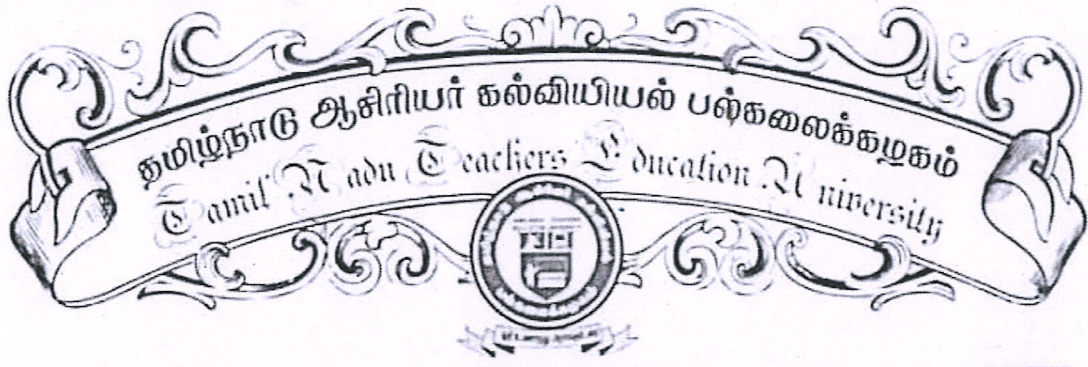 தமிழ்நாடு ஆசிரியர் கல்வியியல் பல்கலைக்கழகம்
Tamil Nadu Teachers Education University